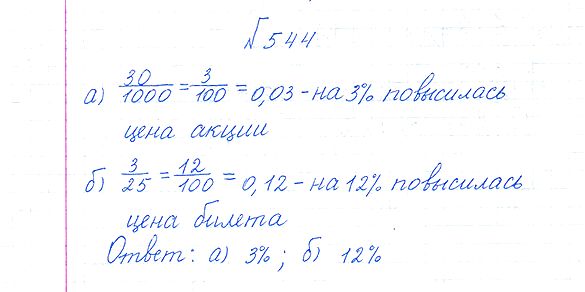 №544
а) 30/1000 = 3/100 = 0,03 - на 3% повысилась
цена акции
б) 3/25 = 12/100 = 0,12 - на 12% повысилась
цена билета
Ответ: а) 3%; б) 12%